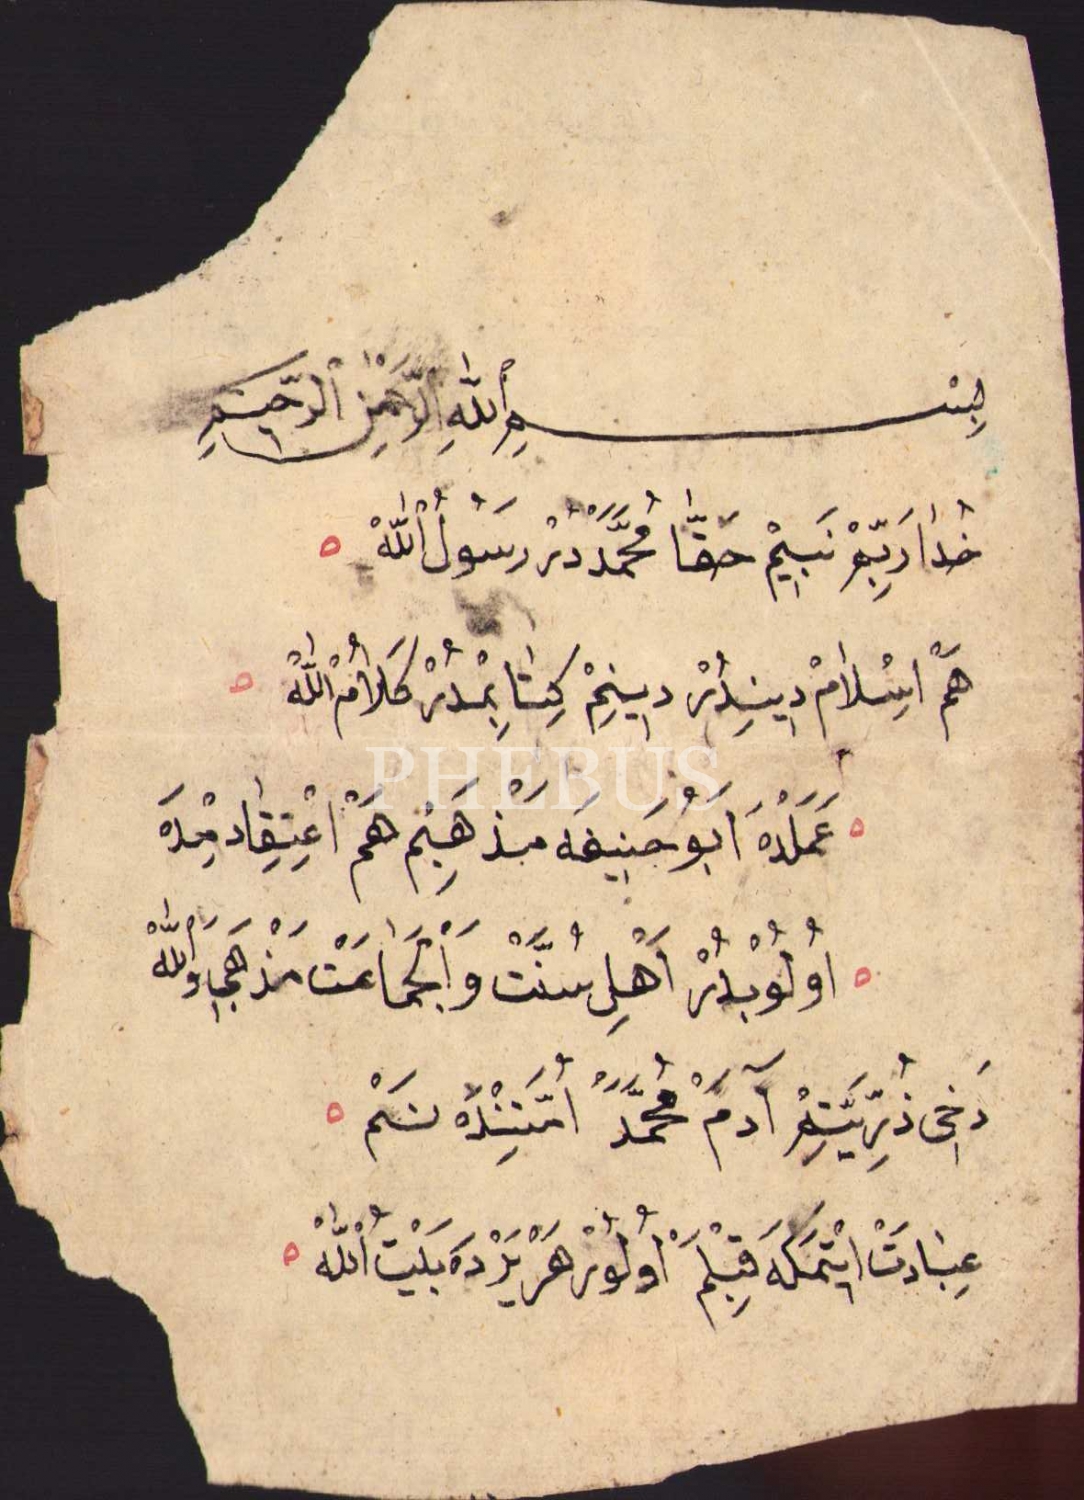 بِسْمِ ٱللّٰهِ ٱلرَّحْمٰنِ ٱلرَّحِيمِ
خُدٰا رَبِّمْ نَبِيمْ حَقَّا مُحَمَّدْ دُرْ رَسُولُ ٱللّٰهْ
هَمْ اِسْلٰامْ دِينِدُرْ دِينِمْ كِتٰابِمْدُرْ كَلٰامُ ٱللّٰهْ
عَمَلْدَهْ اَبُو حَنِيفَه مَذْهَبِمْ هَمْ اِعْتِقٰادِمْدَه
اُولُوبْدُرْ اَهْلِ سُنَّتْ وَٱلْجَمٰاعَتْ مَذْهَبِى وَٱللّٰهْ
دَخِى ذُرِّيَّتِمْ آدَمْ مُحَمَّدْ اُمَّتِنْدَهْ نَسَمْ
عِبٰادَتْ اِيتْمَكَه قِبْلَمْ اُولُورْ هَرْ يَرْدَه بَيْتُ ٱللّٰهْ
PHEBUS